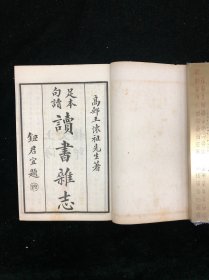 高郵王懷祖先生著
足本
句讀
讀書雜志
鈕君宜題